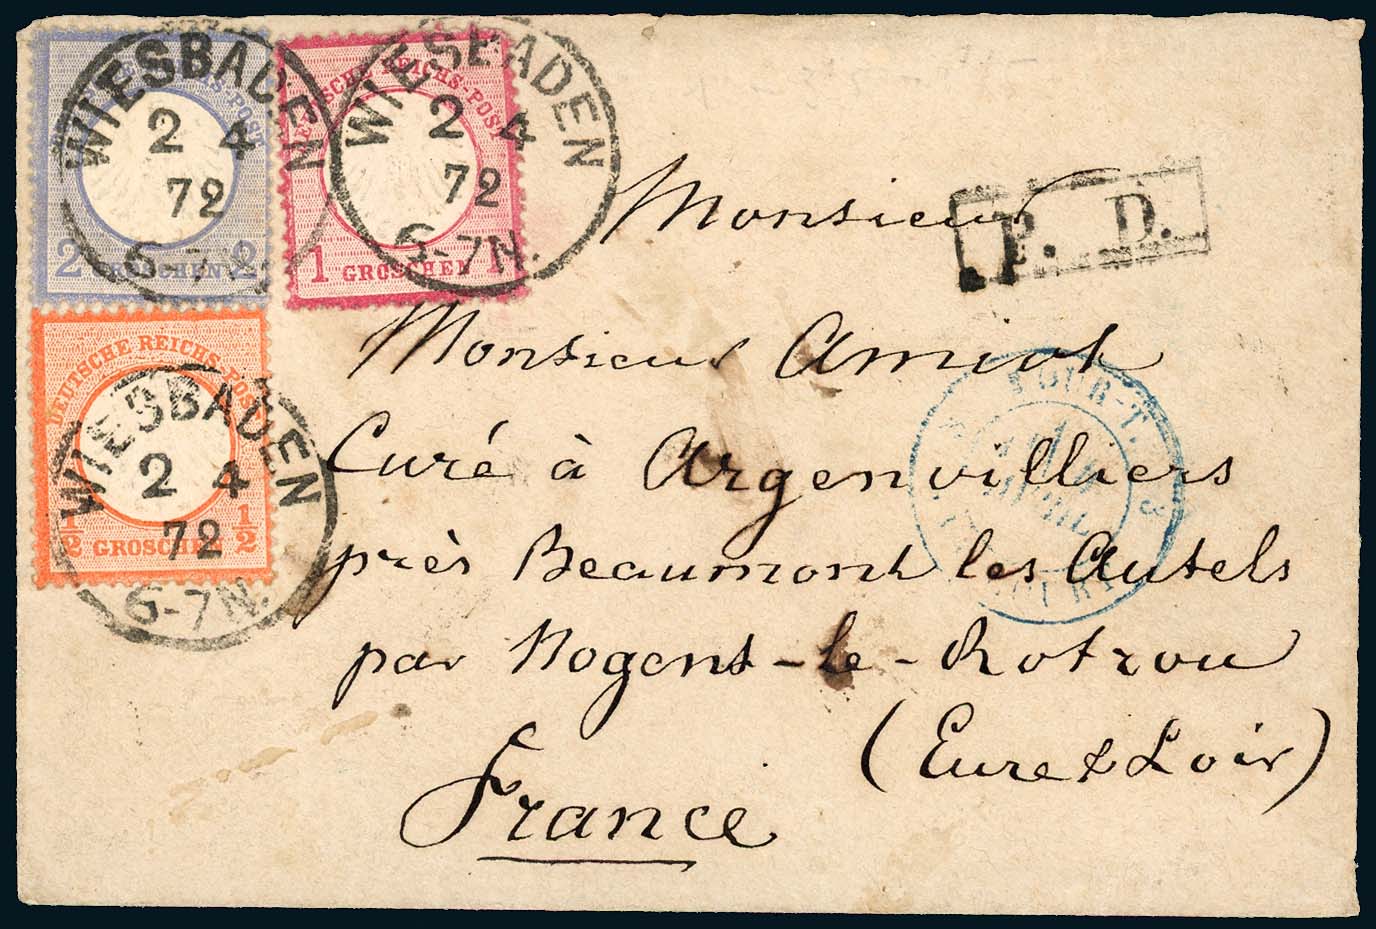 DEUTSCHE REICHS-POST
2 GROSCHEN 2
WIESBADEN
2 4
72
6-7N.
DEUTSCHE REICHS-POST
1 GROSCHEN 1
WIESBADEN
2 4
72
6-7N.
DEUTSCHE REICHS-POST
1/2 GROSCHEN 1/2
WIESBADEN
2 4
72
6-7N.
P. D.
Monsieur
Monsieur Amiot
Curé à Argenvilliers
près Beaumont les Autels
par Nogent-le-Rotrou
(Eure & Loir)
France
TOUR-T. 3
4
AVRIL